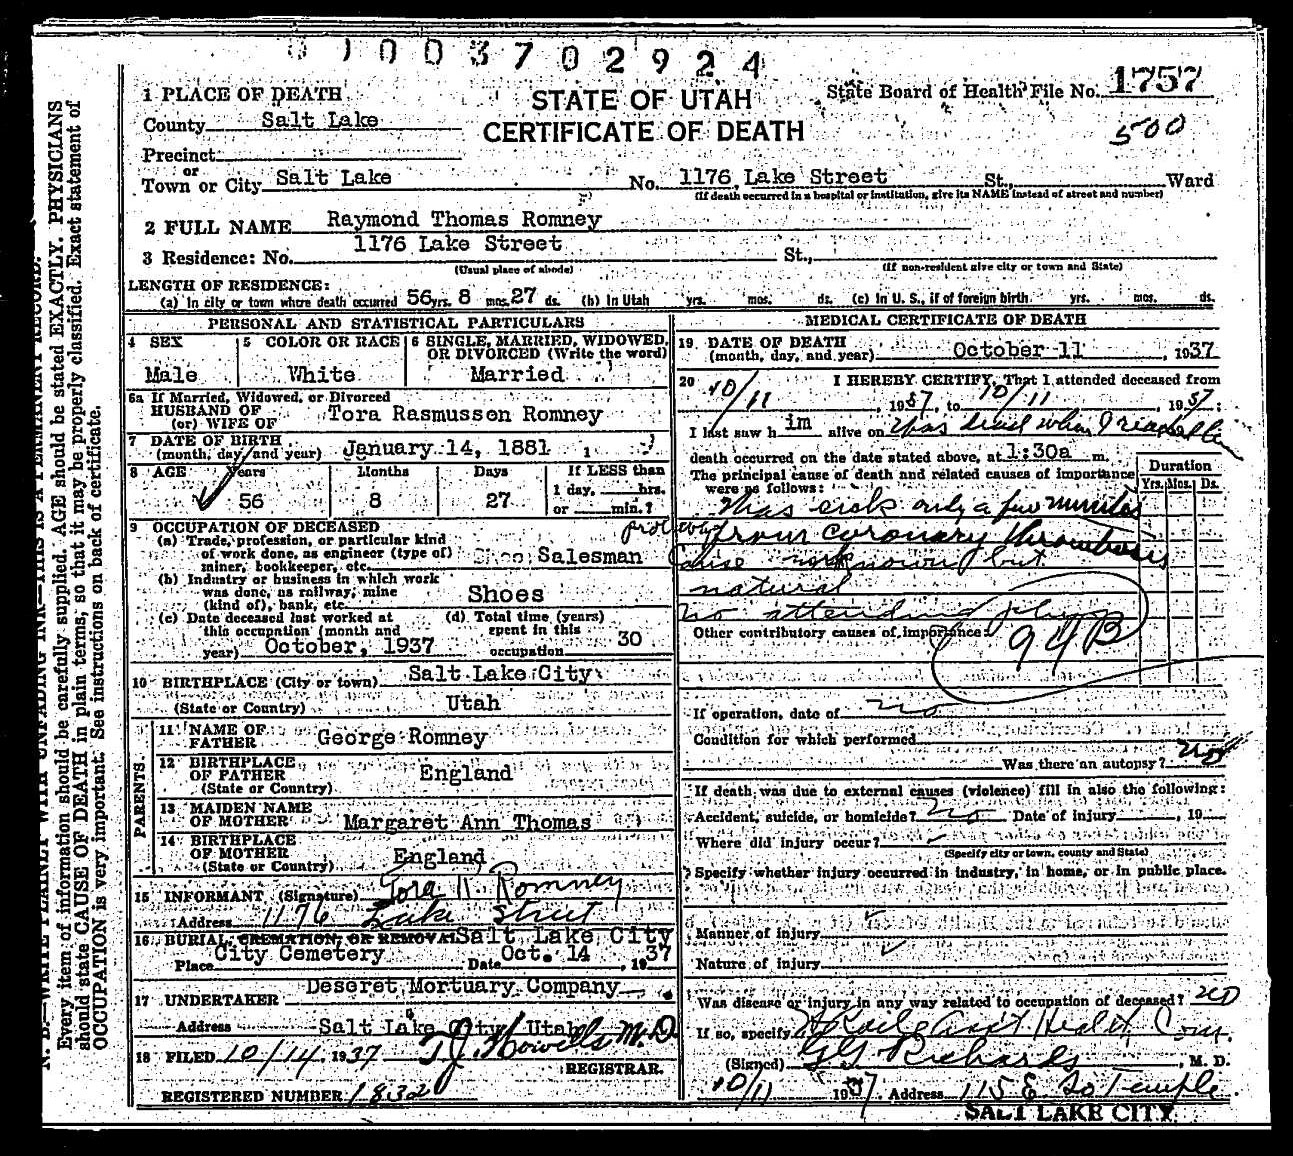 0 1 0 0 3 7 0 2 9 2 4
STATE OF UTAH
CERTIFICATE OF DEATH
State Board of Health File No. 1757
500
1 PLACE OF DEATH
County Salt Lake
Precinct
or
Town or City Salt Lake No. 1176 Lake Street St., Ward
(If death occurred in a hospital or institution, give its NAME instead of street and number)
2 FULL NAME Raymond Thomas Romney
3 Residence: No. 1176 Lake Street St.,
(Usual place of abode) (If non-resident give city or town and State)
LENGTH OF RESIDENCE:
(a) In city or town where death occurred 56 yrs. 8 mos. 27 ds. (b) In Utah yrs. mos. ds. (c) In U. S., if of foreign birth yrs. mos. ds.
PERSONAL AND STATISTICAL PARTICULARS
4 SEX
Male
5 COLOR OR RACE
White
6 SINGLE, MARRIED, WIDOWED,
OR DIVORCED (Write the word)
Married
6a If Married, Widowed, or Divorced
HUSBAND OF
(or) WIFE OF Tora Rasmussen Romney
7 DATE OF BIRTH
(month, day, and year) January 14, 1881
8 AGE Years Months Days If LESS than
1 day, hrs.
56 8 27 or min.?
9 OCCUPATION OF DECEASED
(a) Trade, profession, or particular kind
of work done, as engineer (type of)
miner, bookkeeper, etc. Shoe Salesman
(b) Industry or business in which work
was done, as railway, mine
(kind of), bank, etc. Shoes
(c) Date deceased last worked at
this occupation (month and
year) October, 1937
(d) Total time (years)
spent in this
occupation 30
10 BIRTHPLACE (City or town) Salt Lake City
(State or Country) Utah
PARENTS.
11 NAME OF
FATHER George Romney
12 BIRTHPLACE
OF FATHER England
(State or Country)
13 MAIDEN NAME
OF MOTHER Margaret Ann Thomas
14 BIRTHPLACE
OF MOTHER
(State or Country) England
15 INFORMANT (Signature) Tora R. Romney
Address 1176 Lake Street
16 BURIAL, CREMATION, OR REMOVAL Salt Lake City
Place City Cemetery Date Oct. 14, 1937
17 UNDERTAKER Deseret Mortuary Company
Address Salt Lake City, Utah
18 FILED 10/14, 1937 T J Howells M.D.
REGISTRAR.
REGISTERED NUMBER 1832
MEDICAL CERTIFICATE OF DEATH
19 DATE OF DEATH
(month, day, and year) October 11, 1937
20 I HEREBY CERTIFY, That I attended deceased from
10/11, 1937, to 10/11, 1937;
I last saw him alive on Was dead when I reached him
death occurred on the date stated above, at 1:30a m.
The principal cause of death and related causes of importance
were as follows:
Duration
Yrs. Mos. Ds.
Was sick only a few minutes
probably from coronary thrombosis
Cause not known but
natural
No attending phys
Other contributory causes of importance:
94B
If operation, date of no
Condition for which performed
Was there an autopsy? no
If death was due to external causes (violence) fill in also the following:
Accident, suicide, or homicide? no Date of injury, 19
Where did injury occur?
(Specify city or town, county and State)
Specify whether injury occurred in industry, in home, or in public place.
Manner of injury
Nature of injury
Was disease or injury in any way related to occupation of deceased? no
If so, specify Ass't Health Com.
(Signed) G G Richards, M. D.
10/11 1937. Address 115 E. So Temple
SALT LAKE CITY
N. B.—WRITE PLAINLY WITH UNFADING INK—THIS IS A PERMANENT RECORD.
Every item of information should be carefully supplied. AGE should be stated EXACTLY. PHYSICIANS
should state CAUSE OF DEATH in plain terms, so that it may be properly classified. Exact statement of
OCCUPATION is very important. See instructions on back of certificate.